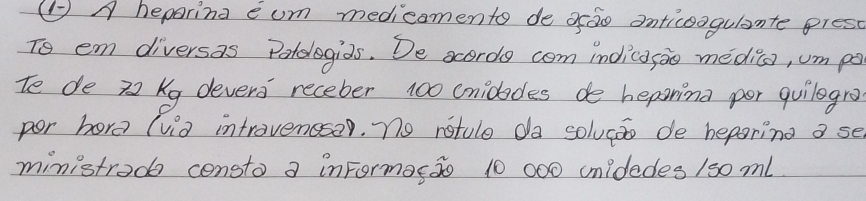 (1-) A heparina é um medicamento de ação anticoagulante presc
To em diversas Patologias. De acordo com indicação médica, um pa
Te de 72 Kg deverá receber 100 unidades de heparina por quilogra
por hora (via intravenosa). no rótulo da solução de heparina a se
ministrada consta a informação 10 000 unidades /50 ml